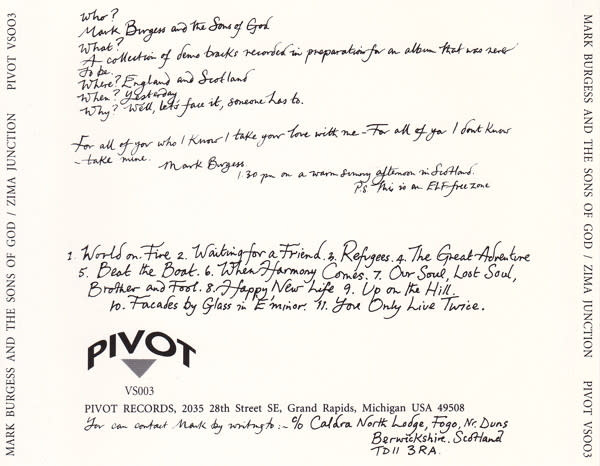 Who?
Mark Burgess and the Sons of God
What?
A collection of demo tracks recorded in preparation for an album that was never
to be.
Where? England and Scotland
When? Yesterday
Why? Well, let's face it, someone has to.
For all of you who I know I take your love with me – For all of ya I dont know
– take mine.
Mark Burgess.
1.30 pm on a warm sunny afternoon in Scotland.
P.S This is an ELF free zone
1. World on Fire 2. Waiting for a Friend. 3. Refugees. 4. The Great Adventure
5. Beat the Boat. 6. When Harmony Comes. 7. Our Soul, Lost Soul,
Brother and Fool. 8. Happy New Life 9. Up on the Hill.
10. Facades by Glass in E'minor. 11. You Only Live Twice.
PIVOT
VS003
PIVOT RECORDS, 2035 28th Street SE, Grand Rapids, Michigan USA 49508
You can contact Mark by writing to :– c/o Caldra North Lodge, Fogo, Nr. Duns
Berwickshire. Scotland
TD11 3RA.
MARK BURGESS AND THE SONS OF GOD / ZIMA JUNCTION PIVOT VS003
MARK BURGESS AND THE SONS OF GOD / ZIMA JUNCTION PIVOT VS003